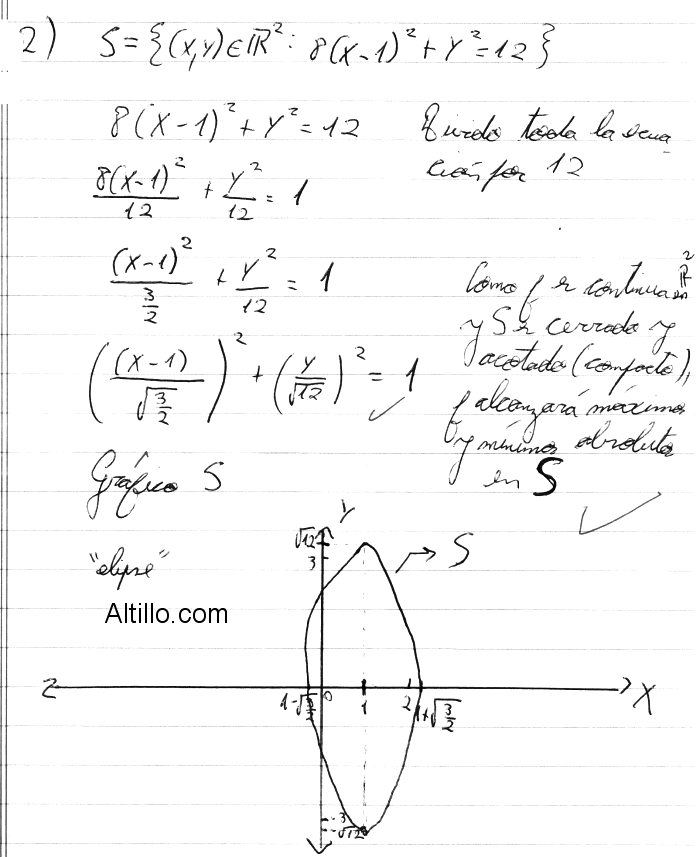 2) S = {(x,y) ∈ ℝ² : 8(x-1)² + y² = 12}
8(x-1)² + y² = 12
Divido toda la ecua
ción por 12
8(x-1)²/12 + y²/12 = 1
(x-1)²/(3/2) + y²/12 = 1
Como f es continua en ℝ²
y S es cerrado y
acotado (compacto),
f alcanzará máximos
y mínimos absolutos
en S
((x-1)/√(3/2))² + (y/√12)² = 1
Gráfico S
"elipse"
Altillo.com
Y
√12
3
S
1-√(3/2) 0 1 2 1+√(3/2) X
-3
-√12